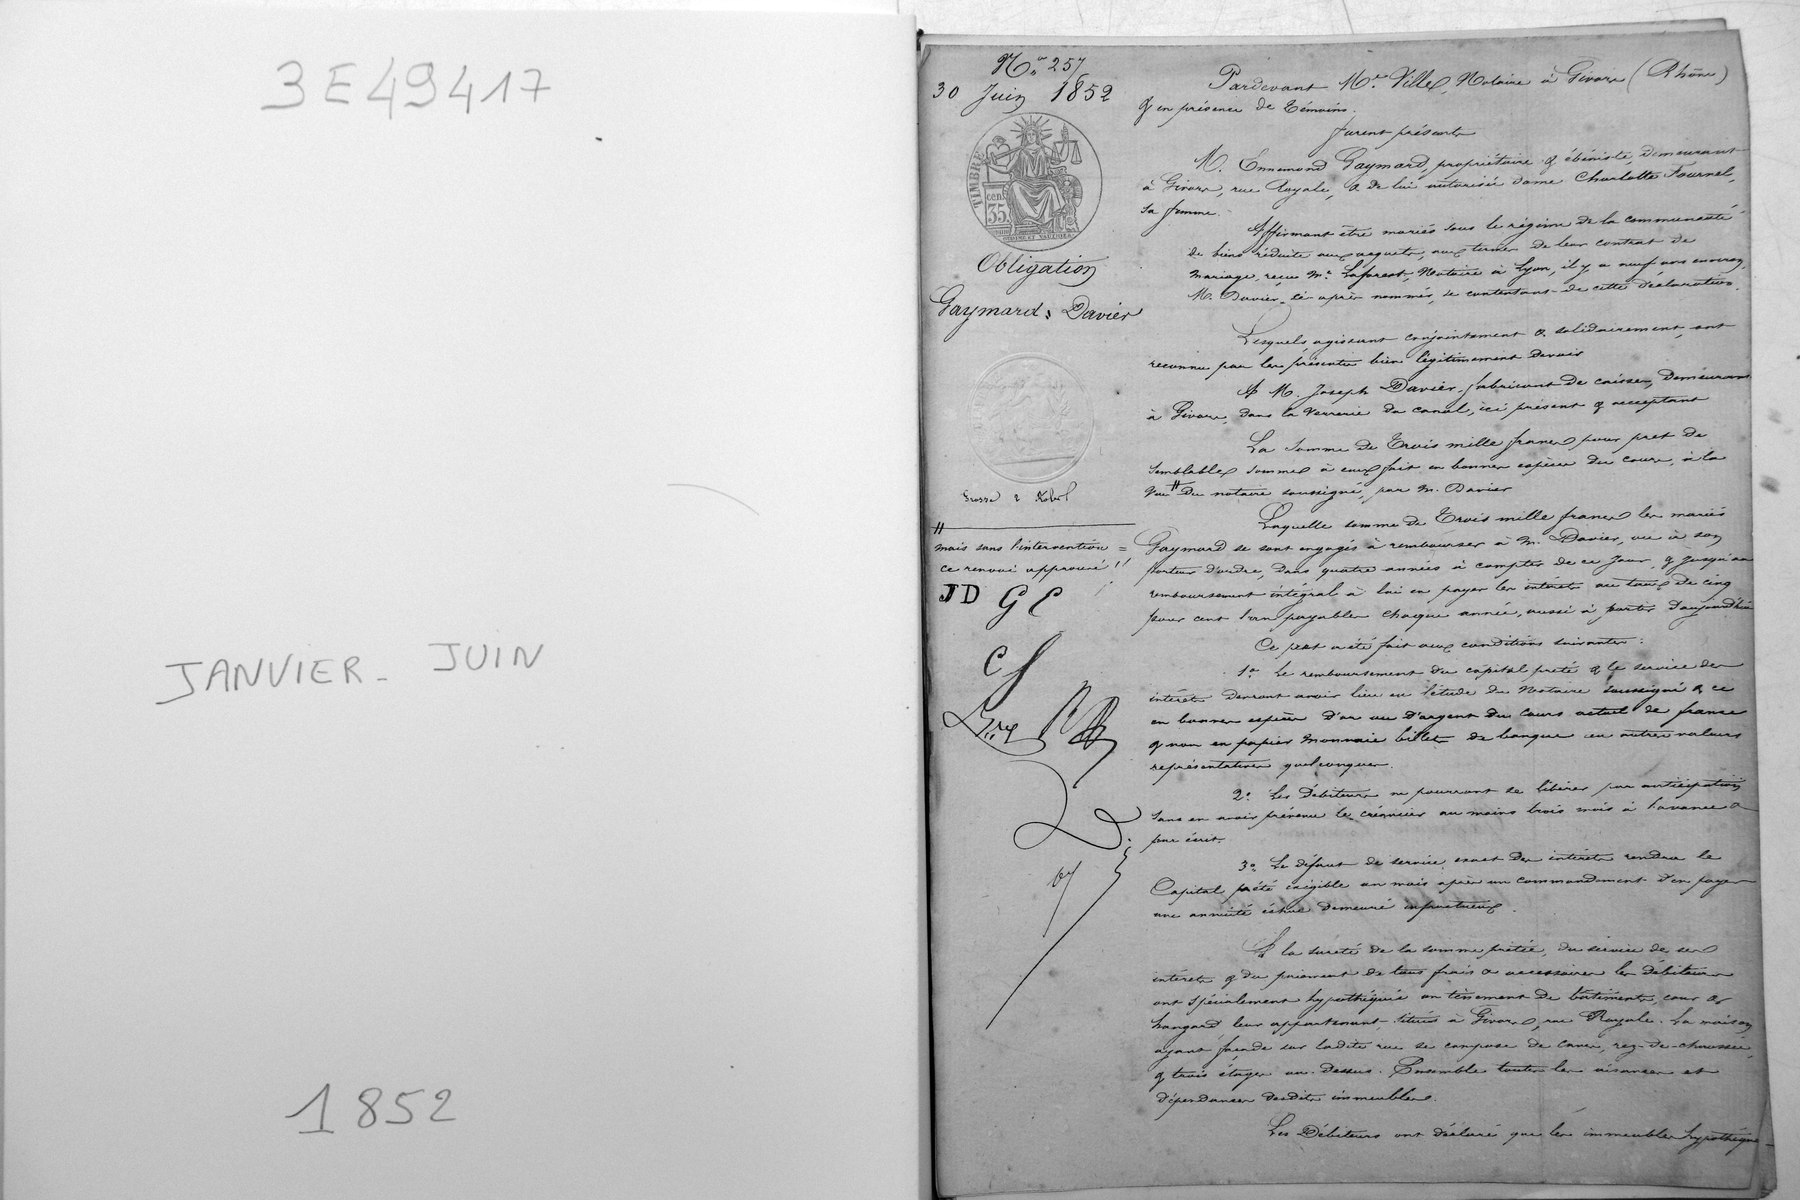 3E49417
JANVIER - JUIN
1852
N.o 257
30 Juin 1852
TIMBRE
cen.
35.
Obligation
Gaymard à Davier
Grosse à
mais sans l'intervention =
ce renvoi approuvé //
JD GE
CF
Pardevant Me. Ville, Notaire à Givors (Rhône)
& en présence de témoins.
furent présents
M. Ennemond Gaymard, propriétaire & ébéniste, demeurant
à Givors, rue Royale, & de lui autorisée dame Charlotte Fournel,
sa femme.
Affirmant être mariés sous le régime de la communauté
de biens réduite aux acquets, aux termes de leur contrat de
mariage, reçu Me. Laforest, Notaire à Lyon, il y a neuf ans environ,
M. Davier, ci-après nommé, se contentant de cette déclaration.
Lesquels agissant conjointement & solidairement, ont
reconnu par les présentes bien légitimement devoir
A M. Joseph Davier, fabricant de caisses, demeurant
à Givors, dans la verrerie du canal, ici présent & acceptant
La somme de Trois mille francs pour pret de
semblable somme à eux fait en bonnes espèces du cours, à la
vue # du notaire soussigné, par M. Davier
Laquelle somme de Trois mille francs les mariés
Gaymard se sont engagés à rembourser à M. Davier, ou à son
porteur d'ordre, dans quatre années à compter de ce jour, & jusqu'au
remboursement intégral à lui en payer les intérêts au taux de cinq
pour cent l'an payables chaque année, aussi à partir d'aujourd'hui
Ce pret a été fait aux conditions suivantes:
1o. Le remboursement du capital prêté & le service des
intérêts devront avoir lieu en l'étude du Notaire soussigné & ce
en bonnes espèces d'or ou d'argent du cours actuel de france
& non en papier monnaie billets de banque ou autres valeurs
représentatives quelconques.
2o. Les débiteurs ne pourront se libérer par anticipation
sans en avoir prévenu le créancier au moins trois mois à l'avance &
par écrit.
3o. Le défaut de service exact des intérêts rendra le
Capital prêté exigible un mois après un commandement d'en payer
une annuité échue demeuré infructueux.
A la sureté de la somme prêtée, du service de ses
intérêts & du paiement de tous frais & accessoires les débiteurs
ont spécialement hypothéqué un tènement de bâtiments, cour &
hangard, leur appartenant, situés à Givors, rue Royale. La maison
ayant façade sur ladite rue se compose de caves, rez-de-chaussée,
& trois étages au-dessus. Ensemble toutes les aisances et
dépendances desdits immeubles.
Les Débiteurs ont déclaré que les immeubles hypothéqués